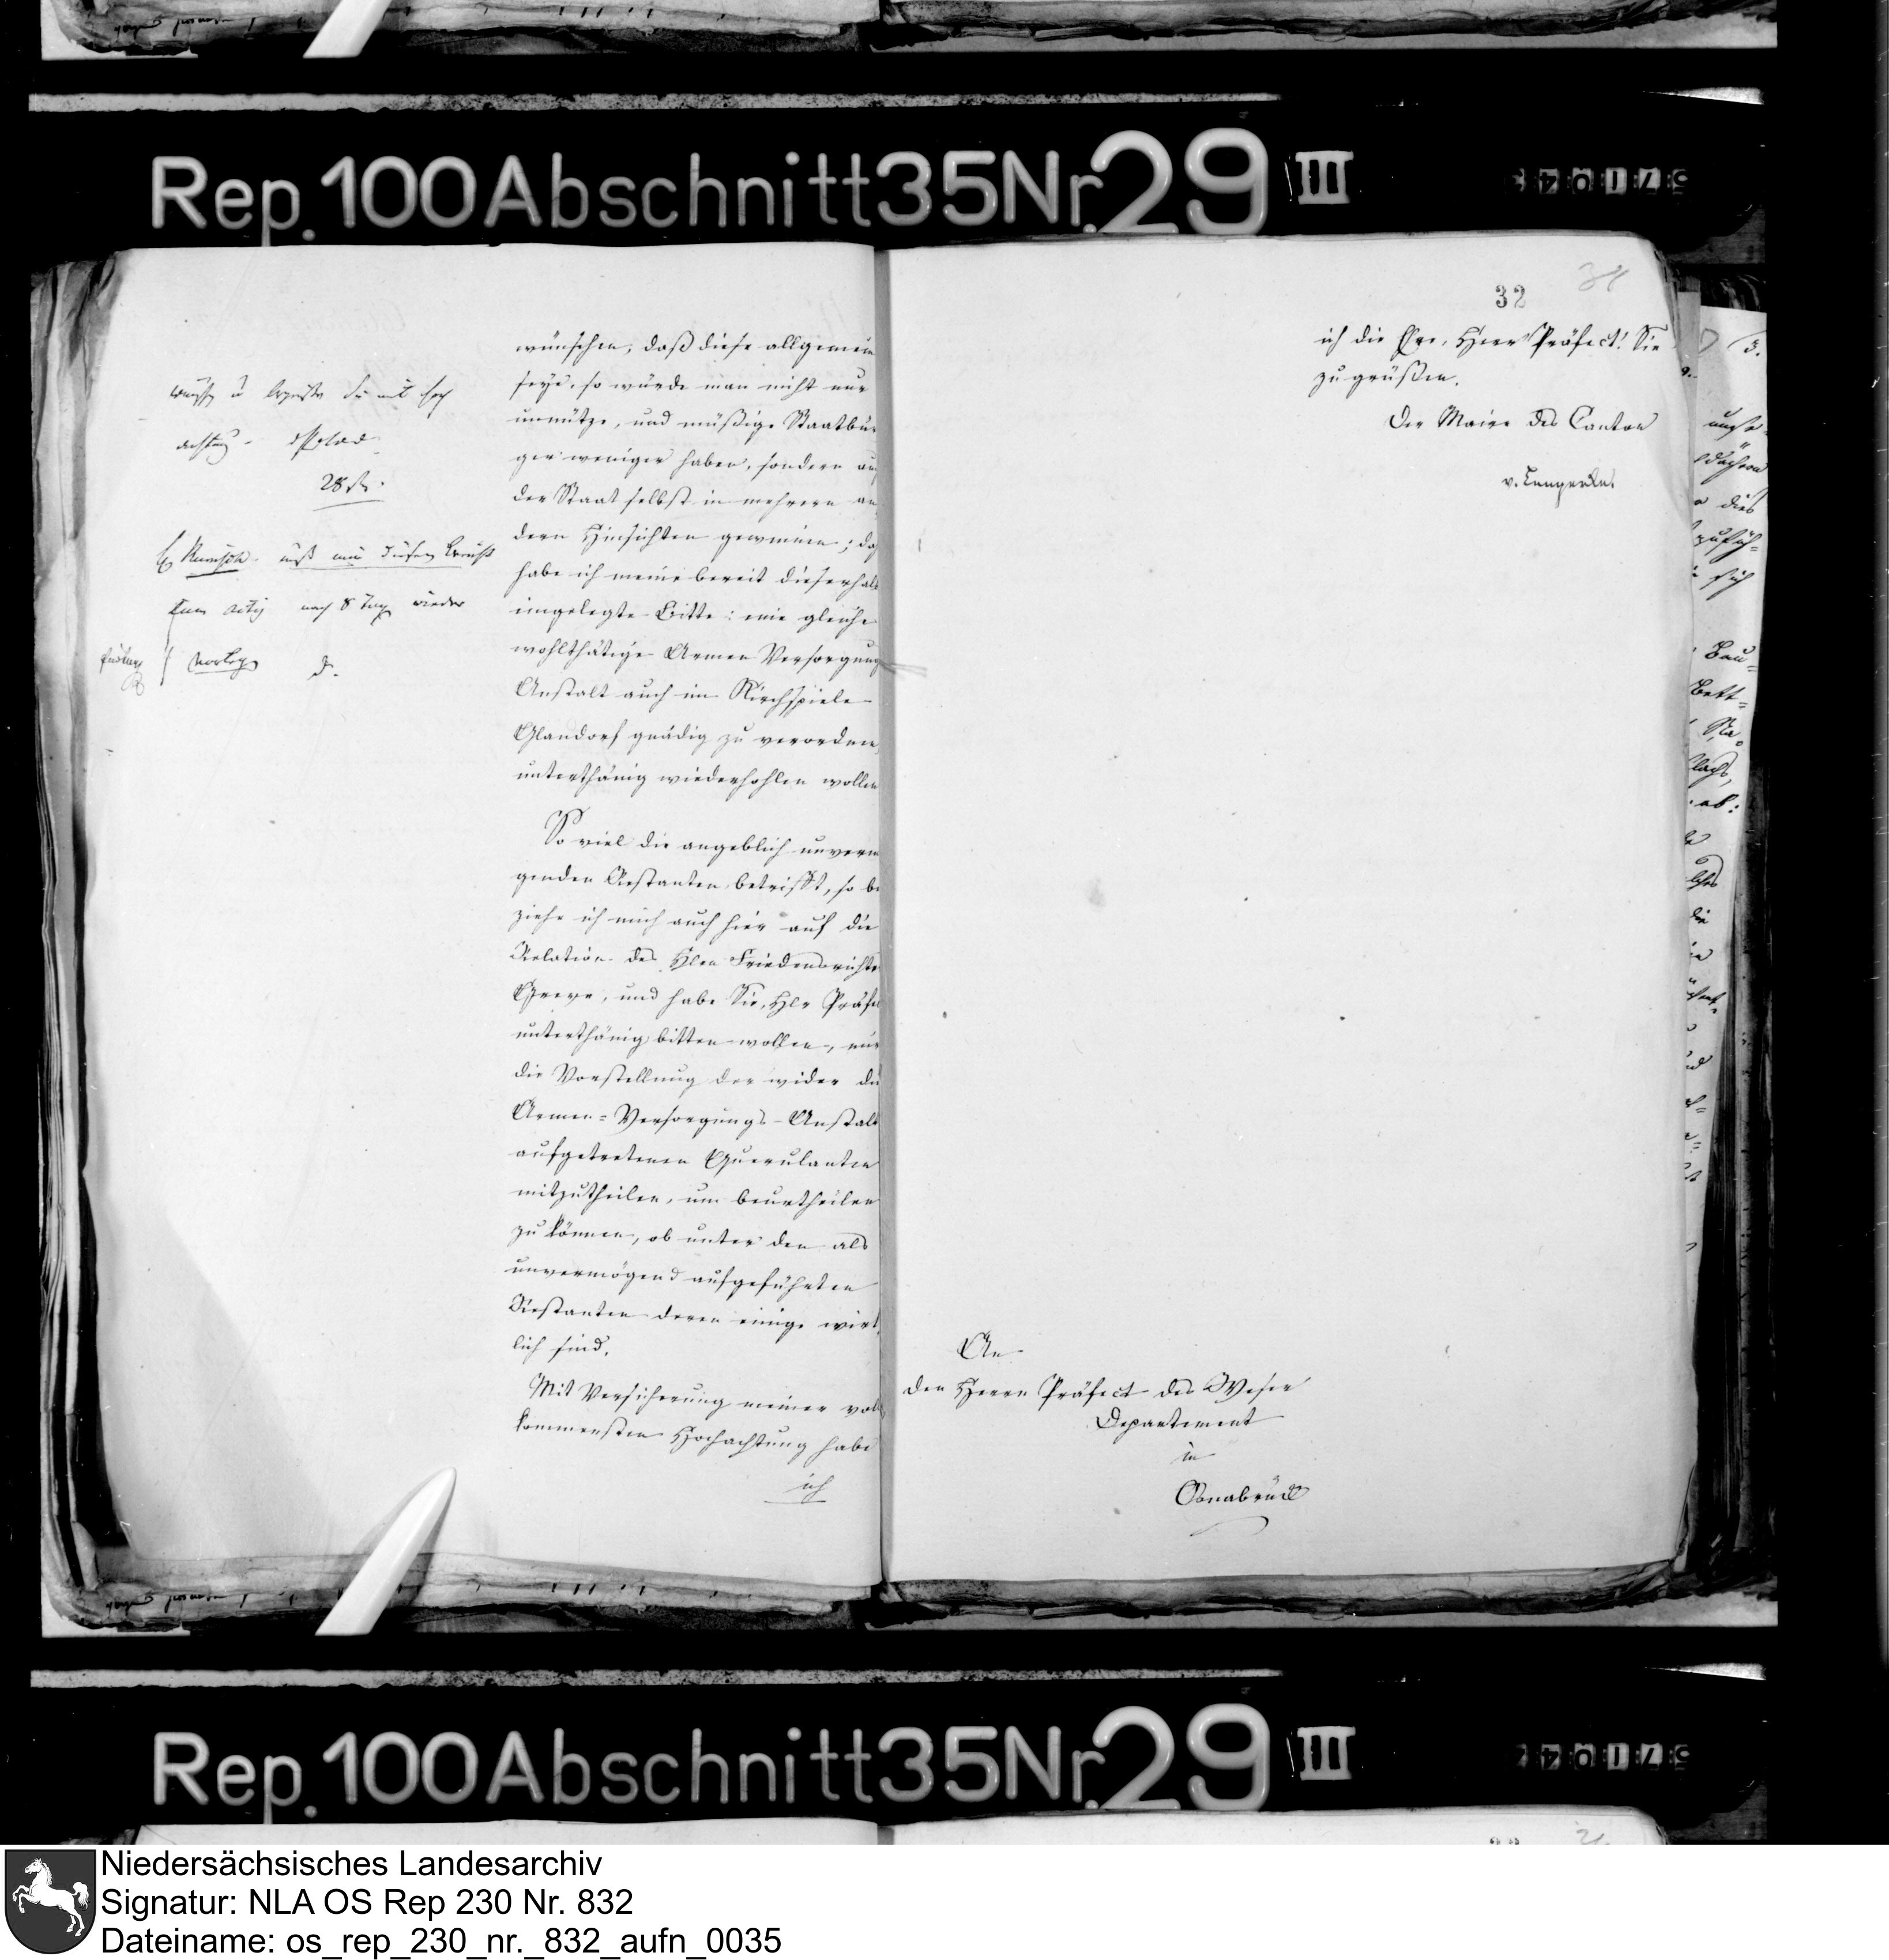 Rep. 100 Abschnitt 35 Nr. 29 III
wünschen, daß diese allgemein
seye, so würde man nicht nur
unnütze, und müßige Staatbür
ger weniger haben, sondern au
der Staat selbst in mehrern an
dern Hinsichten gewinnen; da
habe ich meine bereit dieserhalb
eingelegte Bitte: eine gleiche
wohlthätige Armen Versorgung
Anstalt auch im Kirchspiele
Glandorf gnädig zu verordnen
unterthänig wiederhohlen wollen
So viel die angeblich unverm
genden Restanten betrifft, so be
ziehe ich mich auch hier auf die
Relation des Hlen Friedensrichte
und habe Sie, Hlr Präfe
unterthänig bitten wollen, mir
die Vorstellung der wider die
Armen-Versorgungs-Anstalt
aufgetretenen Querulanten
mitzutheilen, um beurtheilen
zu können, ob unter den als
unvermögend aufgeführten
Restanten deren einige wirk
lich sind.
Mit Versicherung meiner voll
kommensten Hochachtung habe
ich
28 st.
nach 8 Tag wieder
32
ich die Ehre, Herr Präfect! Sie
zu grüßen.
Der Maire des Canton
v. Lengerke
An
den Herrn Präfect des Weser
Departement
in
Osnabrück
Rep. 100 Abschnitt 35 Nr. 29 III
Niedersächsisches Landesarchiv
Signatur: NLA OS Rep 230 Nr. 832
Dateiname: os_rep_230_nr._832_aufn_0035